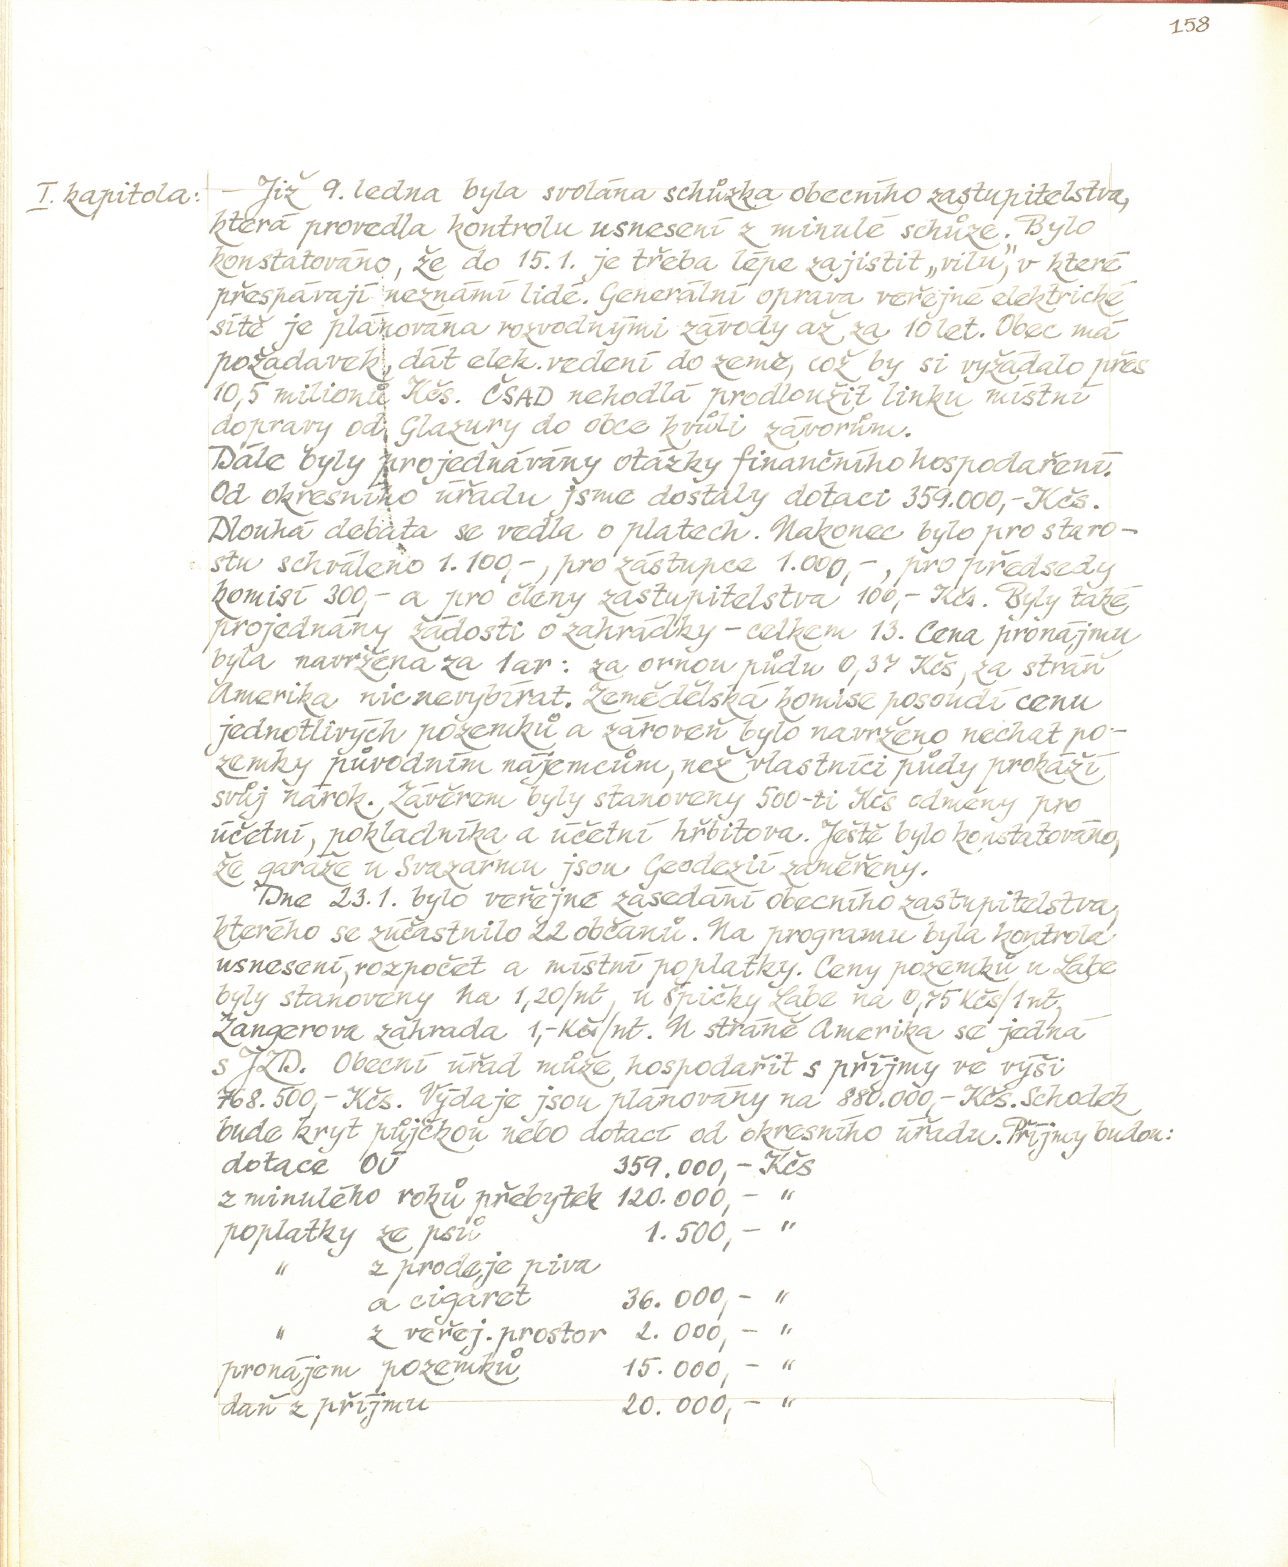 158
I. kapitola: – Již 9. ledna byla svolána schůzka obecního zastupitelstva,
která provedla kontrolu usnesení z minulé schůze. Bylo
konstatováno, že do 15.1. je třeba lépe zajistit „vilu“, v které
přespávají neznámí lidé. Generální oprava veřejné elektrické
sítě je plánována rozvodnými závody až za 10 let. Obec má
požadavek, dát elek. vedení do země, což by si vyžádalo přes
10,5 milionů Kčs. ČSAD nehodlá prodloužit linku místní
dopravy od Glazury do obce kvůli závorům.
Dále byly projednávány otázky finančního hospodaření.
Od okresního úřadu jsme dostaly dotaci 359.000,- Kčs.
Dlouhá debata se vedla o platech. Nakonec bylo pro staro-
stu schváleno 1.100,-, pro zástupce 1.000,-, pro předsedy
komisí 300,- a pro členy zastupitelstva 100,- Kčs. Byly také
projednány žádosti o zahrádky – celkem 13. Cena pronájmu
byla navržena za 1ar: za ornou půdu 0,37 Kčs, za stráň
Amerika nic nevybírat. Zemědělská komise posoudí cenu
jednotlivých pozemků a zároveň bylo navrženo nechat po-
zemky původním nájemcům, než vlastníci půdy prokáží
svůj nárok. Závěrem byly stanoveny 500-ti Kčs odměny pro
účetní, pokladníka a účetní hřbitova. Ještě bylo konstatováno,
že garáže u Svazarmu jsou Geodezií zaměřeny.
Dne 23.1. bylo veřejné zasedání obecního zastupitelstva,
kterého se zúčastnilo 22 občanů. Na programu byla kontrola
usnesení, rozpočet a místní poplatky. Ceny pozemků u Labe
byly stanoveny na 1,20/m², u špičky Labe na 0,75 Kčs/1m²,
Zangerova zahrada 1,- Kčs/m². U stráně Amerika se jedná
s JZD. Obecní úřad může hospodařit s příjmy ve výši
768.500,- Kčs. Výdaje jsou plánovány na 880.000,- Kčs. Schodek
bude kryt půjčkou nebo dotací od okresního úřadu. Příjmy budou:
dotace OÚ 359.000,- Kčs
z minulého roků přebytek 120.000,- "
poplatky ze psů 1.500,- "
" z prodeje piva
a cigaret 36.000,- "
" z veřej. prostor 2.000,- "
pronájem pozemků 15.000,- "
daň z příjmu 20.000,- "